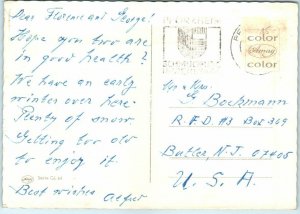 Dear Florence and George!
Hope you two are
in good health?
We have an early
winter over here.
Plenty of snow
Getting too old
to enjoy it
Best wishes
Alfred
color
color
Mr & Mrs.
G. Bockmann
R.F.D. #3 Box 369
Butler, N.J. 07405
U.S.A.